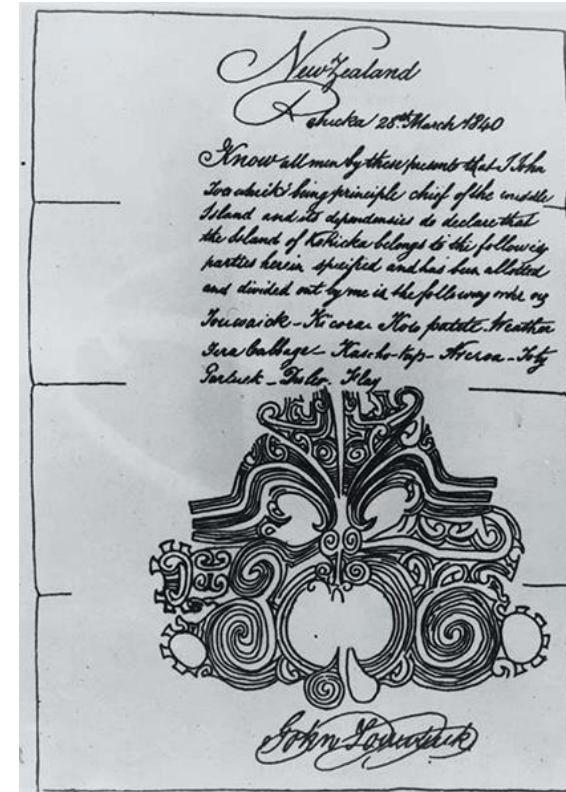 New Zealand
Rohicka 28th March 1840
Know all men by these presents that I John
Towaick being principle chief of the middle
Island and its dependensies do declare that
the Island of KoRicka belongs to the following
parties herin specified and has been allotted
and divided out by me in the following order viz
Towwaick - Kicora - potate - Weather
Cabbage - Kascho-tap - - Toby
- Flay
John